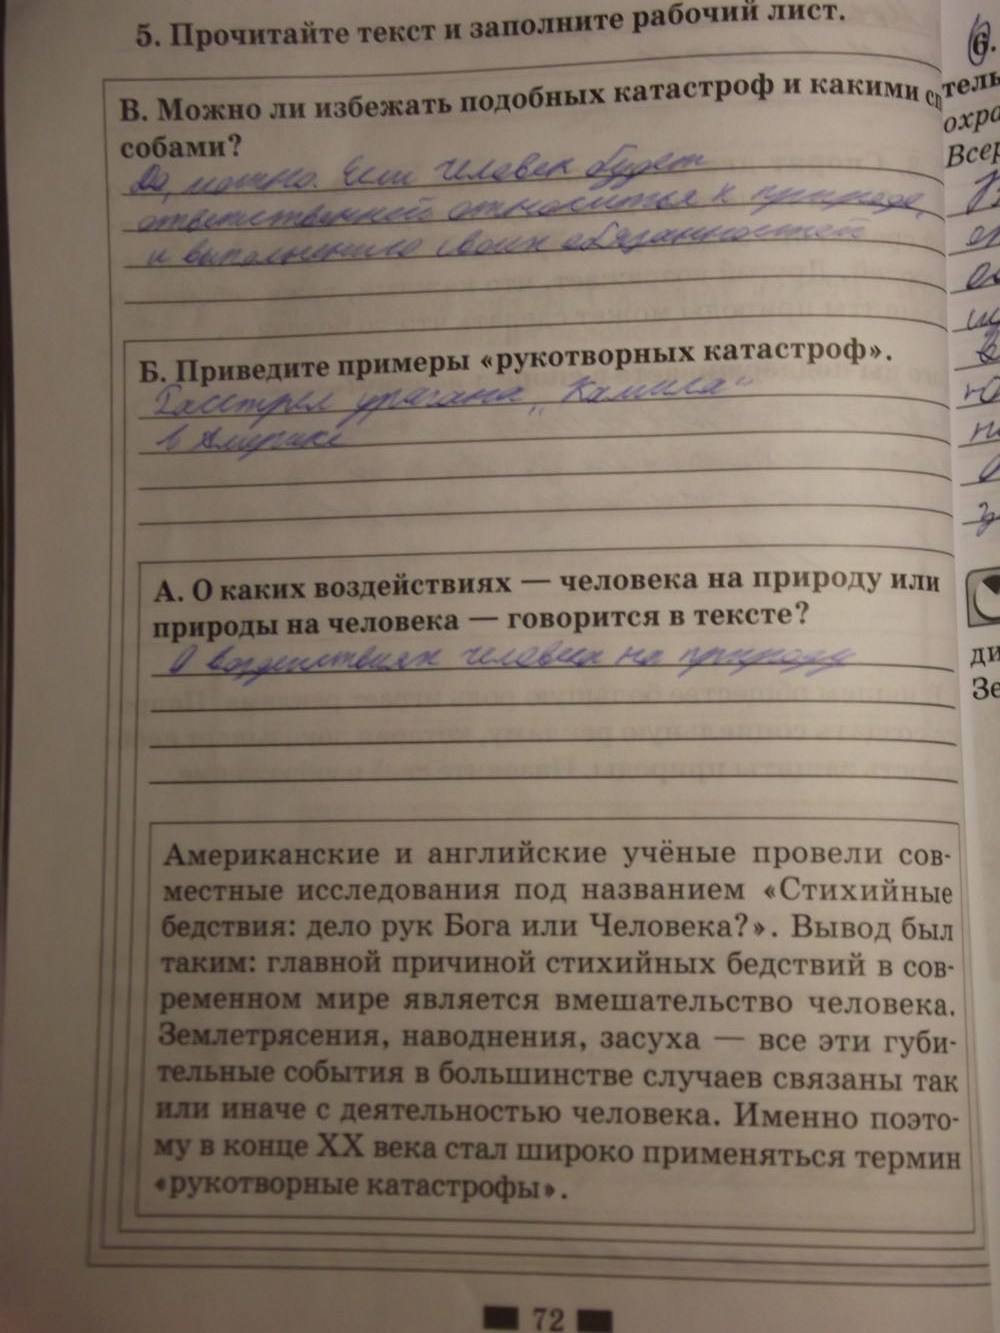 5. Прочитайте текст и заполните рабочий лист.
В. Можно ли избежать подобных катастроф и какими сп
собами?
Да, можно. Если человек будет
ответственней относиться к природе,
и выполнению своих обязанностей
Б. Приведите примеры «рукотворных катастроф».
Расстрел урагана „Камила"
в Америке
А. О каких воздействиях — человека на природу или
природы на человека — говорится в тексте?
О воздействиях человека на природу
Американские и английские учёные провели сов-
местные исследования под названием «Стихийные
бедствия: дело рук Бога или Человека?». Вывод был
таким: главной причиной стихийных бедствий в сов-
ременном мире является вмешательство человека.
Землетрясения, наводнения, засуха — все эти губи-
тельные события в большинстве случаев связаны так
или иначе с деятельностью человека. Именно поэто-
му в конце XX века стал широко применяться термин
«рукотворные катастрофы».
72
6.
тель
охра
Всер
ди
Зе